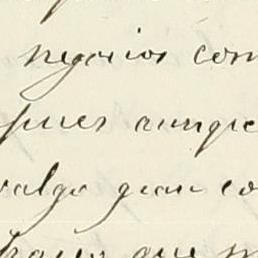 negocios com
pues aunque
valga gran co
que